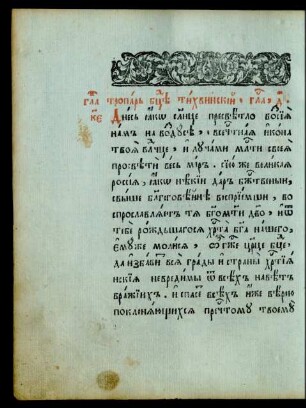 тропарь бцѣ тихвинскїи, гла, д҃.
Днесь ꙗкѡ слн҃це пресвѣтло восїѧ
намъ на воздусѣ, всечтнаѧ икона
твоѧ влчце, и лучами мл҃ти своеѧ
просвѣти весь мїръ. сїю же великаѧ
россїѧ, ꙗкѡ нѣкїи даръ бж҃твеныи,
свыше бл҃гоговѣинѣ воспрїимши, во
впрославлѧетъ тѧ бг҃омт҃и дв҃о, и ѿ
тебе рождьшагосѧ хр҃та бг҃а нашего,
емуже молисѧ, ѽ гж҃е цр҃це бц҃е,
да избавитъ всѧ грады и страны хр҃тїѧ
нскїѧ невредимы ѿ всѣхъ навѣтъ
вражїихъ. и спасетъ всѣхъ иже вѣрно
покланѧющихсѧ пречт҃ому твоему